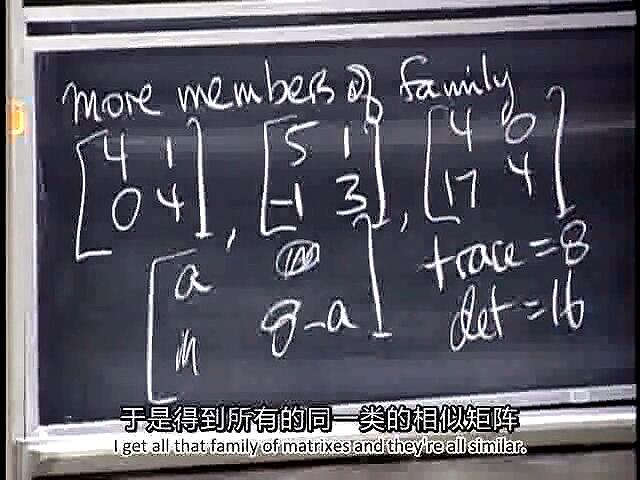 more members of family
[4 1
0 4], [5 1
-1 3], [4 0
17 4]
[a
m 8-a]
trace = 8
det = 16
于是得到所有的同一类的相似矩阵
I get all that family of matrixes and they're all similar.